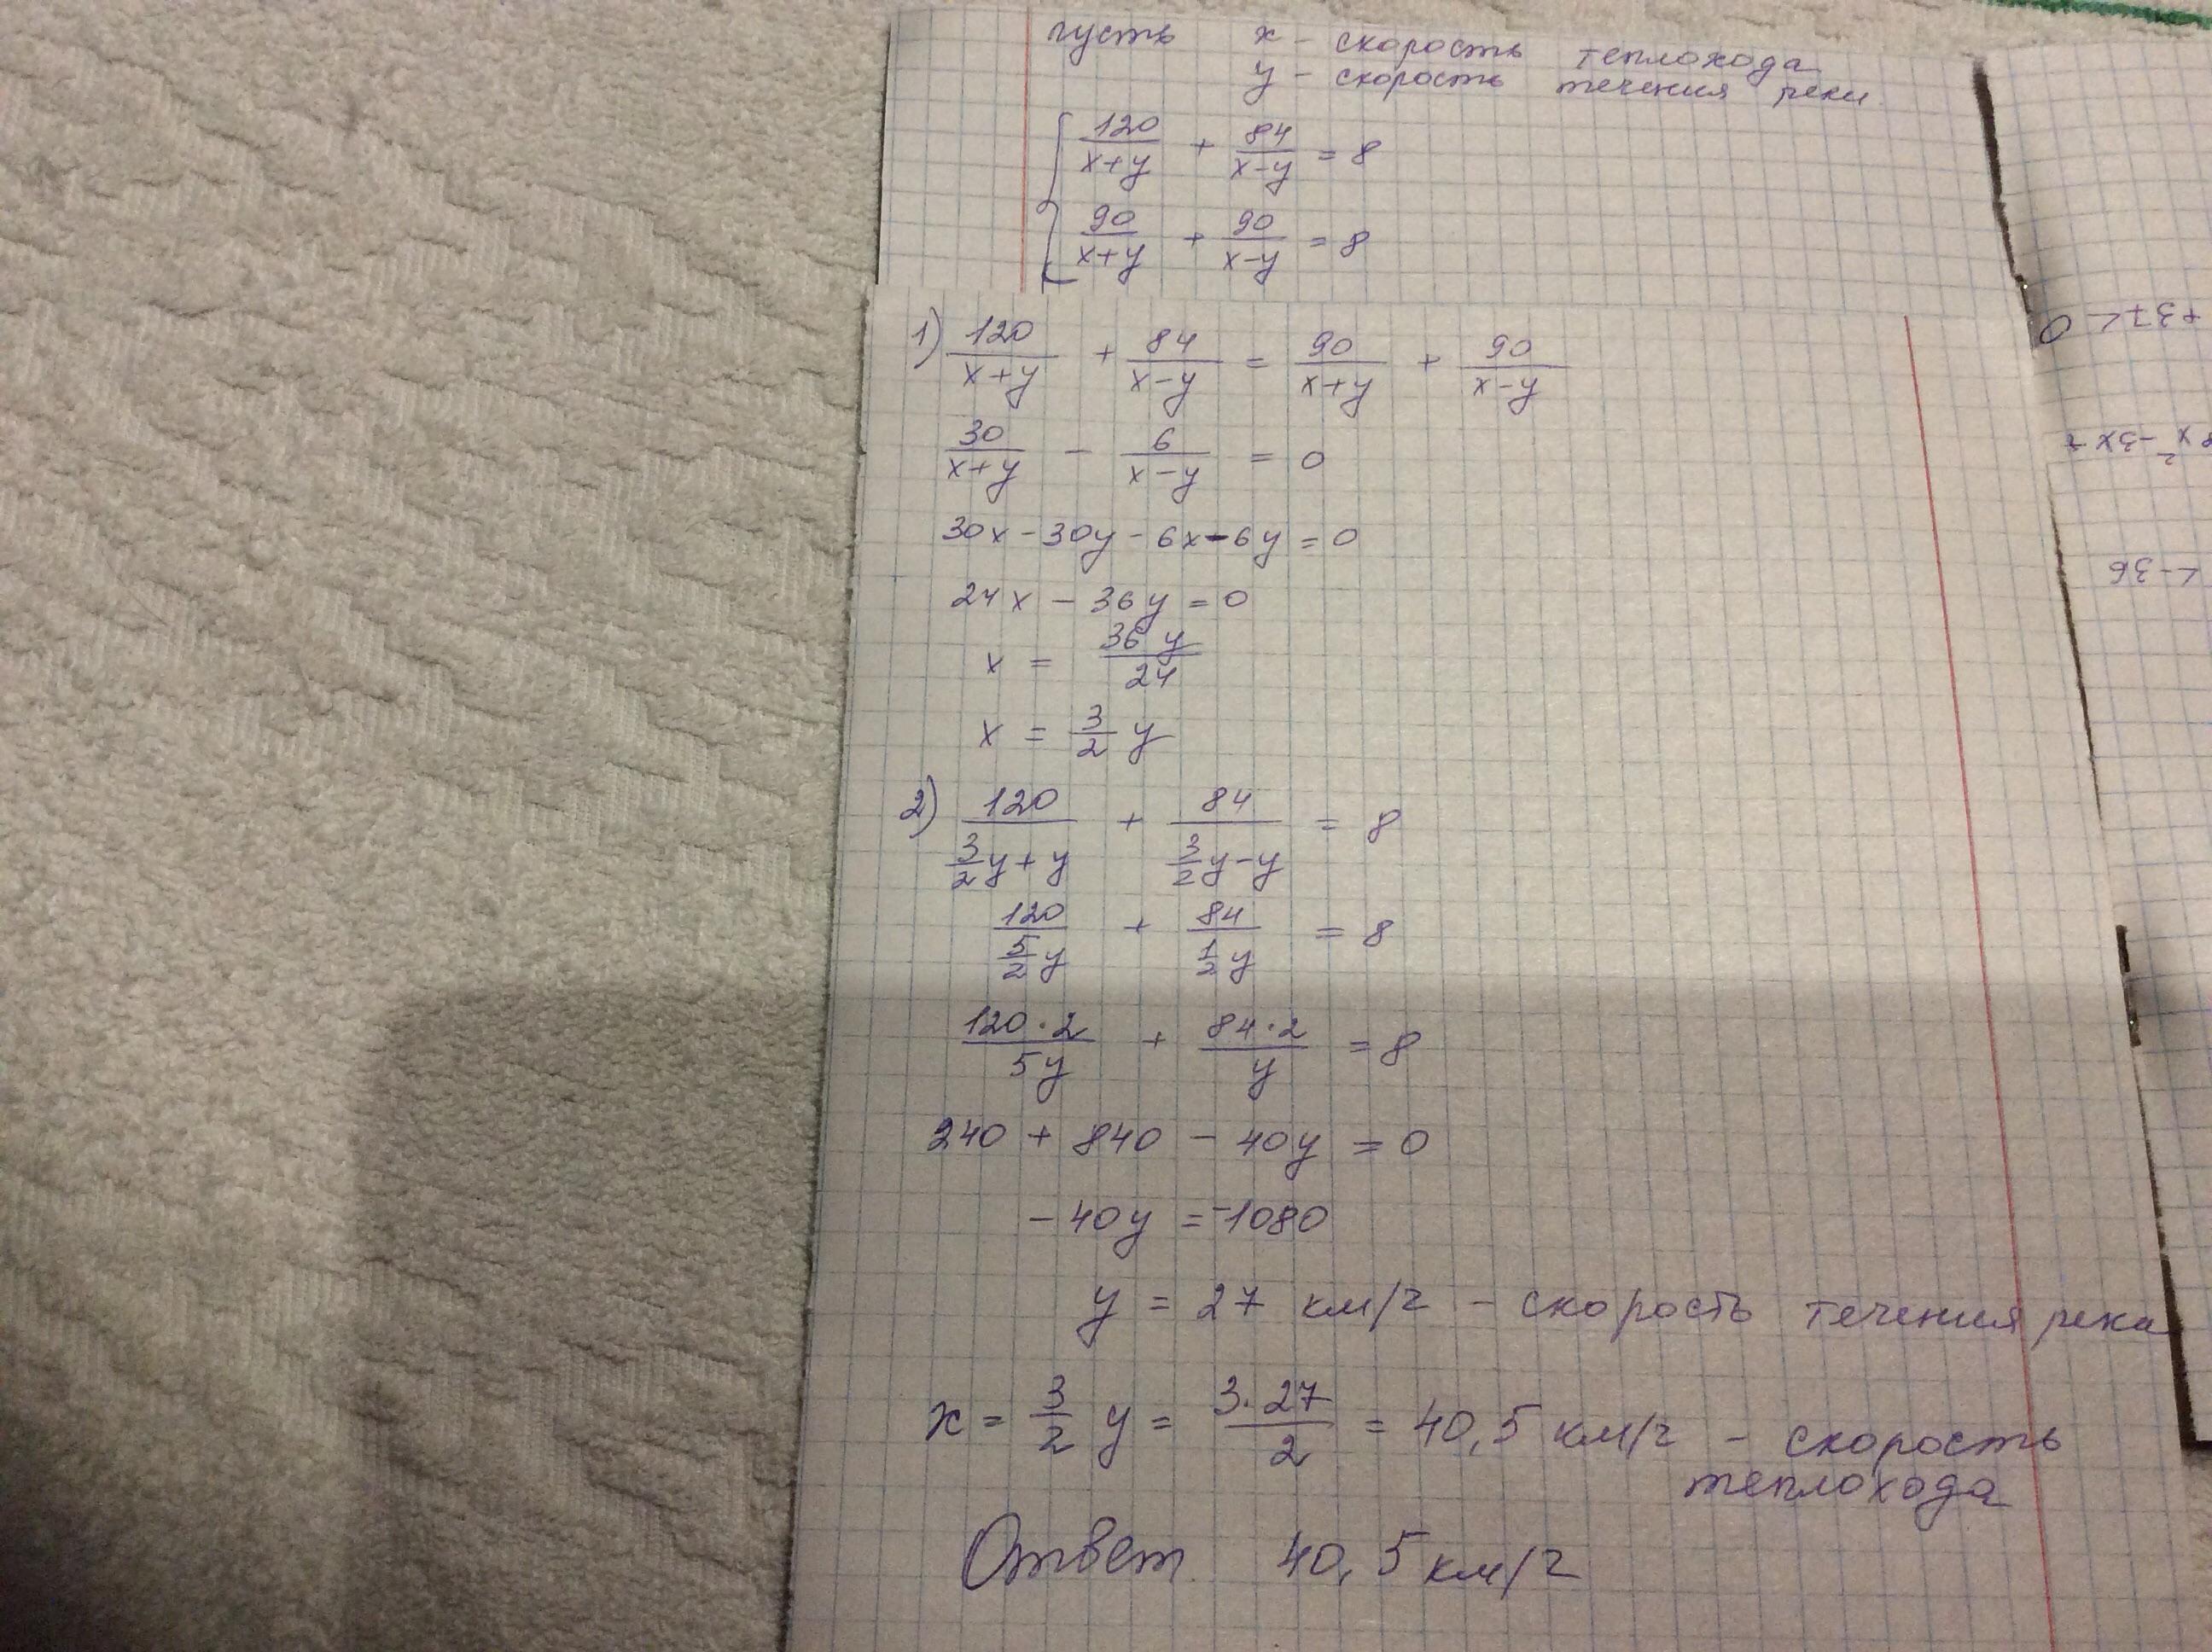 пусть x - скорость теплохода
y - скорость течения реки
120/(x+y) + 84/(x-y) = 8
90/(x+y) + 90/(x-y) = 8
1) 120/(x+y) + 84/(x-y) = 90/(x+y) + 90/(x-y)
30/(x+y) - 6/(x-y) = 0
30x - 30y - 6x - 6y = 0
24x - 36y = 0
x = 36y/24
x = 3/2 y
2) 120/(3/2 y + y) + 84/(3/2 y - y) = 8
120/(5/2 y) + 84/(1/2 y) = 8
120·2/5y + 84·2/y = 8
240 + 840 - 40y = 0
-40y = -1080
y = 27 км/г - скорость течения река
x = 3/2 y = 3·27/2 = 40,5 км/г - скорость
теплохода
Ответ 40,5 км/г
+37< 0
x² -3x
<-36